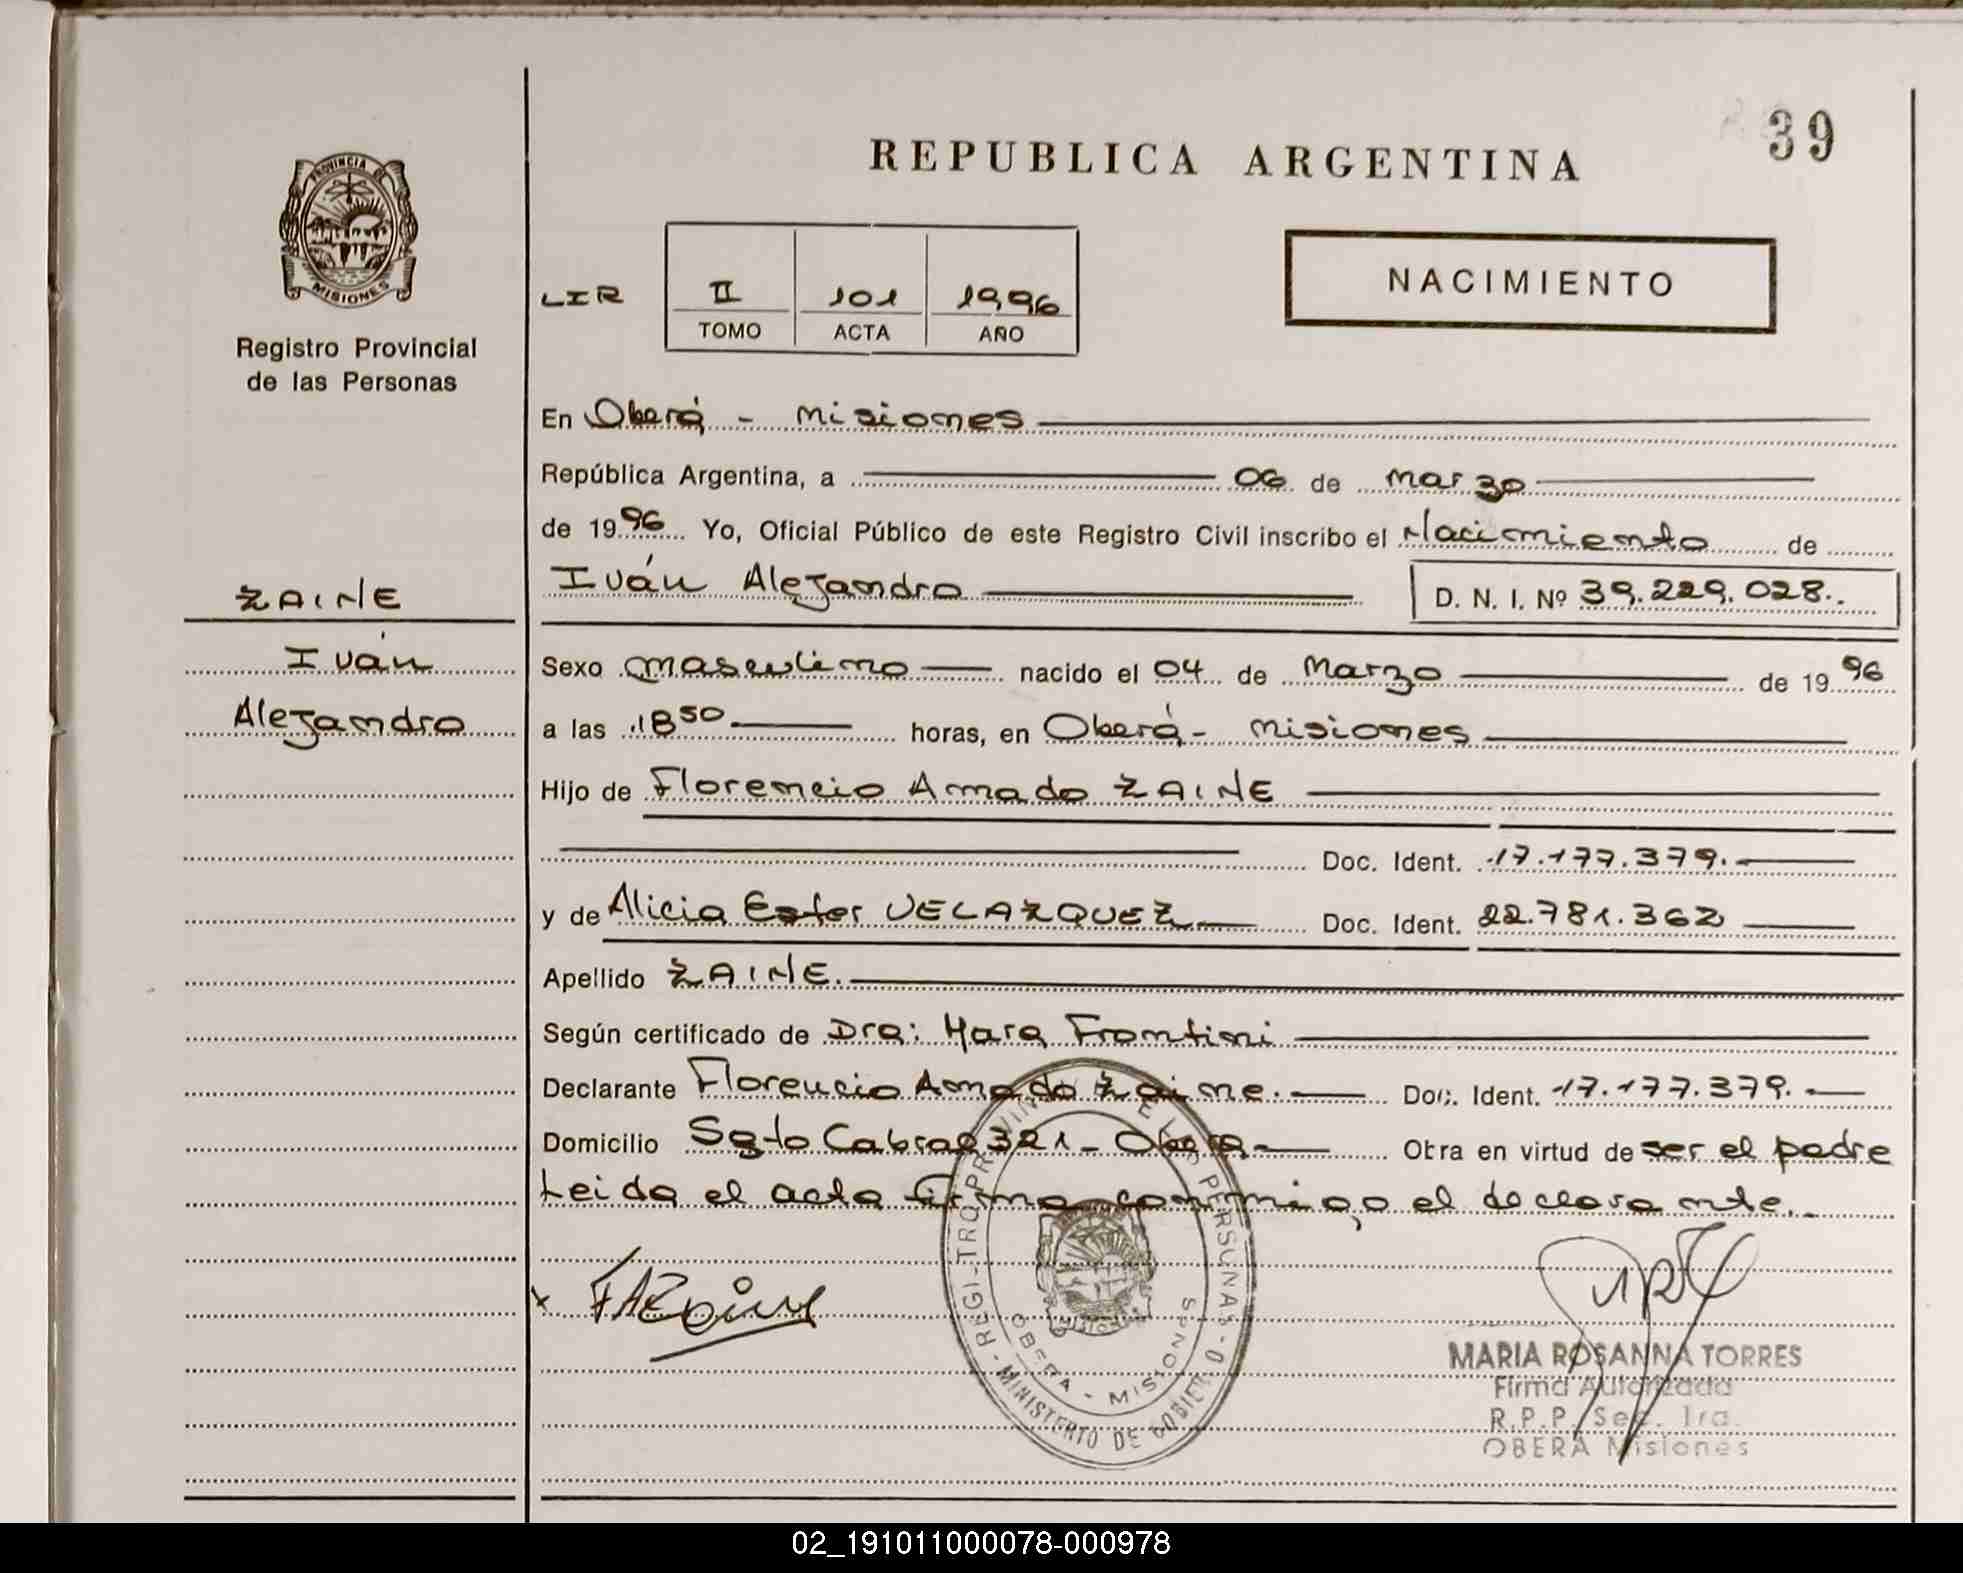 39
REPUBLICA ARGENTINA
PROVINCIA DE
MISIONES
Registro Provincial
de las Personas
NACIMIENTO
LIR II 101 1996
TOMO ACTA AÑO
En Oberá - Misiones
República Argentina, a 06 de Marzo
de 1996 Yo, Oficial Público de este Registro Civil inscribo el Nacimiento de
Iván Alejandro D. N. I. Nº 39.229.028.
ZAINE
Iván
Alejandro
Sexo masculino nacido el 04 de Marzo de 1996
a las 18 50 horas, en Oberá - Misiones
Hijo de Florencio Amado ZAINE
Doc. Ident. 17.177.379.
y de Alicia Ester VELAZQUEZ Doc. Ident. 22.781.362
Apellido ZAINE.
Según certificado de Dra: Mara Frontini
Declarante Florencio Amado Zaine. Doc. Ident. 17.177.379.
Domicilio Sgto Cabral 321 - Oberá Obra en virtud de ser el padre
Leida el acta firma conmigo el declarante.
x FAZaine
REGISTRO PROVINCIAL DE LAS PERSONAS - MINISTERIO DE GOBIERNO
OBERA - MISIONES
MARIA ROSANNA TORRES
Firma Autorizada
R.P.P. Sec. 1ra.
OBERA Misiones
02_191011000078-000978